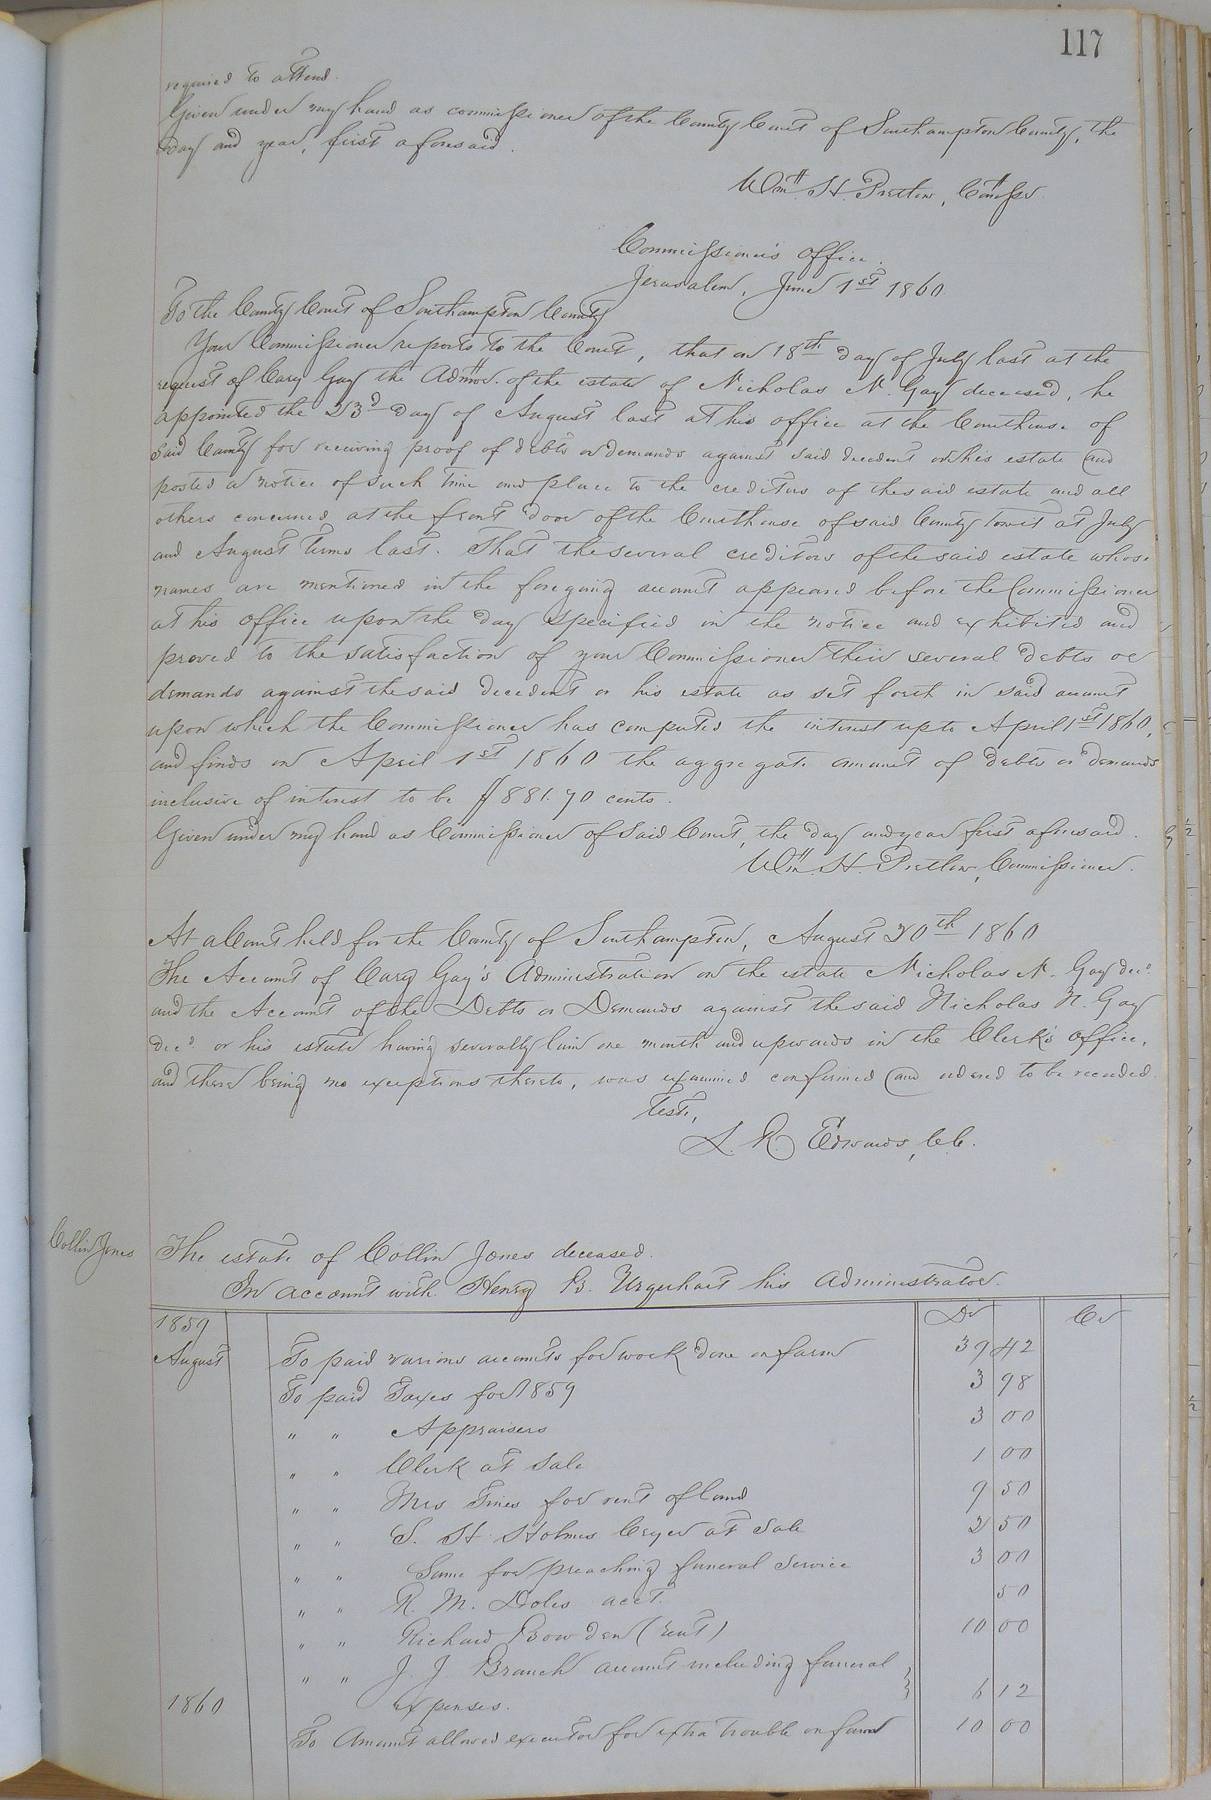 117
required to attend.
Given under my hand as commissioner of the County Court of Southampton County, the
day and year, first aforesaid.
Wm. H. Pretlow, Comissr.
Commissioner's office.
Jerusalem, June 1st 1860
To the County Court of Southampton County
Your Commissioner reports to the Court, that on 18th day of July last at the
request of Cary Gay the Admor. of the estate of Nicholas N. Gay deceased, he
appointed the 23d day of August last at his office at the Courthouse of
said County for receiving proof of debts or demands against said decedent or his estate and
posted a notice of such time and place to the creditors of the said estate and all
others concerned at the front door of the Courthouse of said County towit at July
and August terms last. That the several creditors of the said estate whose
names are mentioned in the foregoing account appeared before the Commissioner
at his office upon the day specified in the notice and exhibited and
proved to the satisfaction of your Commissioner their several debts or
demands against the said decedent or his estate as set forth in said account
upon which the Commissioner has computed the interest up to April 1st 1860,
and finds on April 1st 1860 the aggregate amount of debts or demands
inclusive of interest to be $881.70 cents.
Given under my hand as Commissioner of Said Court, the day and year first aforesaid.
Wm. H. Pretlow, Commissioner.
At a Court held for the County of Southampton, August 20th 1860
The Account of Cary Gay's Administration on the estate Nicholas N. Gay decd.
and the Account of the Debts or Demands against the said Nicholas N. Gay
decd. or his estate having severally lain one month and upwards in the Clerk's office,
and there being no exceptions thereto, was examined confirmed and ordered to be recorded.
Teste,
L. R. Edwards, C.C.
Collin Jones
The estate of Collin Jones deceased.
In account with Henry B. Urquhart his Administrator.
1859 Dr Cr
August To paid various accounts for work done on farm 39 42
To paid Taxes for 1859 3 98
" " Appraisers 3 00
" " Clerk at Sale 1 00
" " Mrs for rent of land 9 50
" " S. H. Holmes Cryer at Sale 2 50
" " Same for preaching funeral service 3 00
" " R. M. Doles acct. 50
" " Richard Bowden (rent) 10 00
" " J. J. Branch account including funeral
1860 expenses. 6 12
To Amount allowed executor for extra trouble on farm 10 00